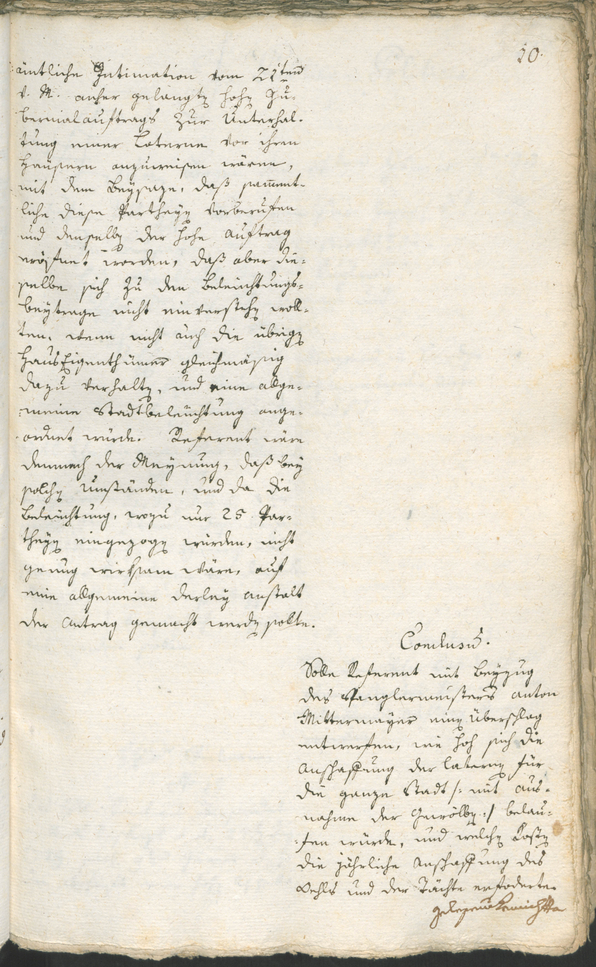 10.
ämtliche Intimation vom 21ten
v. M. anher gelangte hohe Gu-
bernialauftrags zur Unterhal-
tung einer Laterne vor ihren
Häusern anzuweisen wären,
mit dem Beysaze, daß sament-
liche diese Partheyen vorberufen
und denselben der hohe Auftrag
eröfnet worden, daß aber die-
selbe sich zu den Beleuchtungs-
beytrage nicht einverstehen woll-
ten, wenn nicht auch die übrigen
HausEigenthümer gleichmäsig
dazu verhalten, und eine allge-
meine Stadtbeleuchtung ange-
ordnet würde. Referent wäre
demnach der Meynung, daß bey
solchen Umständen, und da die
Beleuchtung, wozu nur 25 Par-
theyen eingezogen würden, nicht
genug wirksam wäre, auf
eine allgemeine derley Anstalt
der Antrag gemacht werden sollte.
Conclusum.
Solle Referent mit Beyzug
des Spanglermeisters Anton
Mittermayer einen Überschlag
entwerfen, wie hoch sich die
Anschaffung der Laternen für
die ganze Stadt /: mit Aus-
nahme der Gewölber :/ belau-
fen würde, und welche Kosten
die jährliche Anschaffung des
Oehls und der Dachte erfoderte.